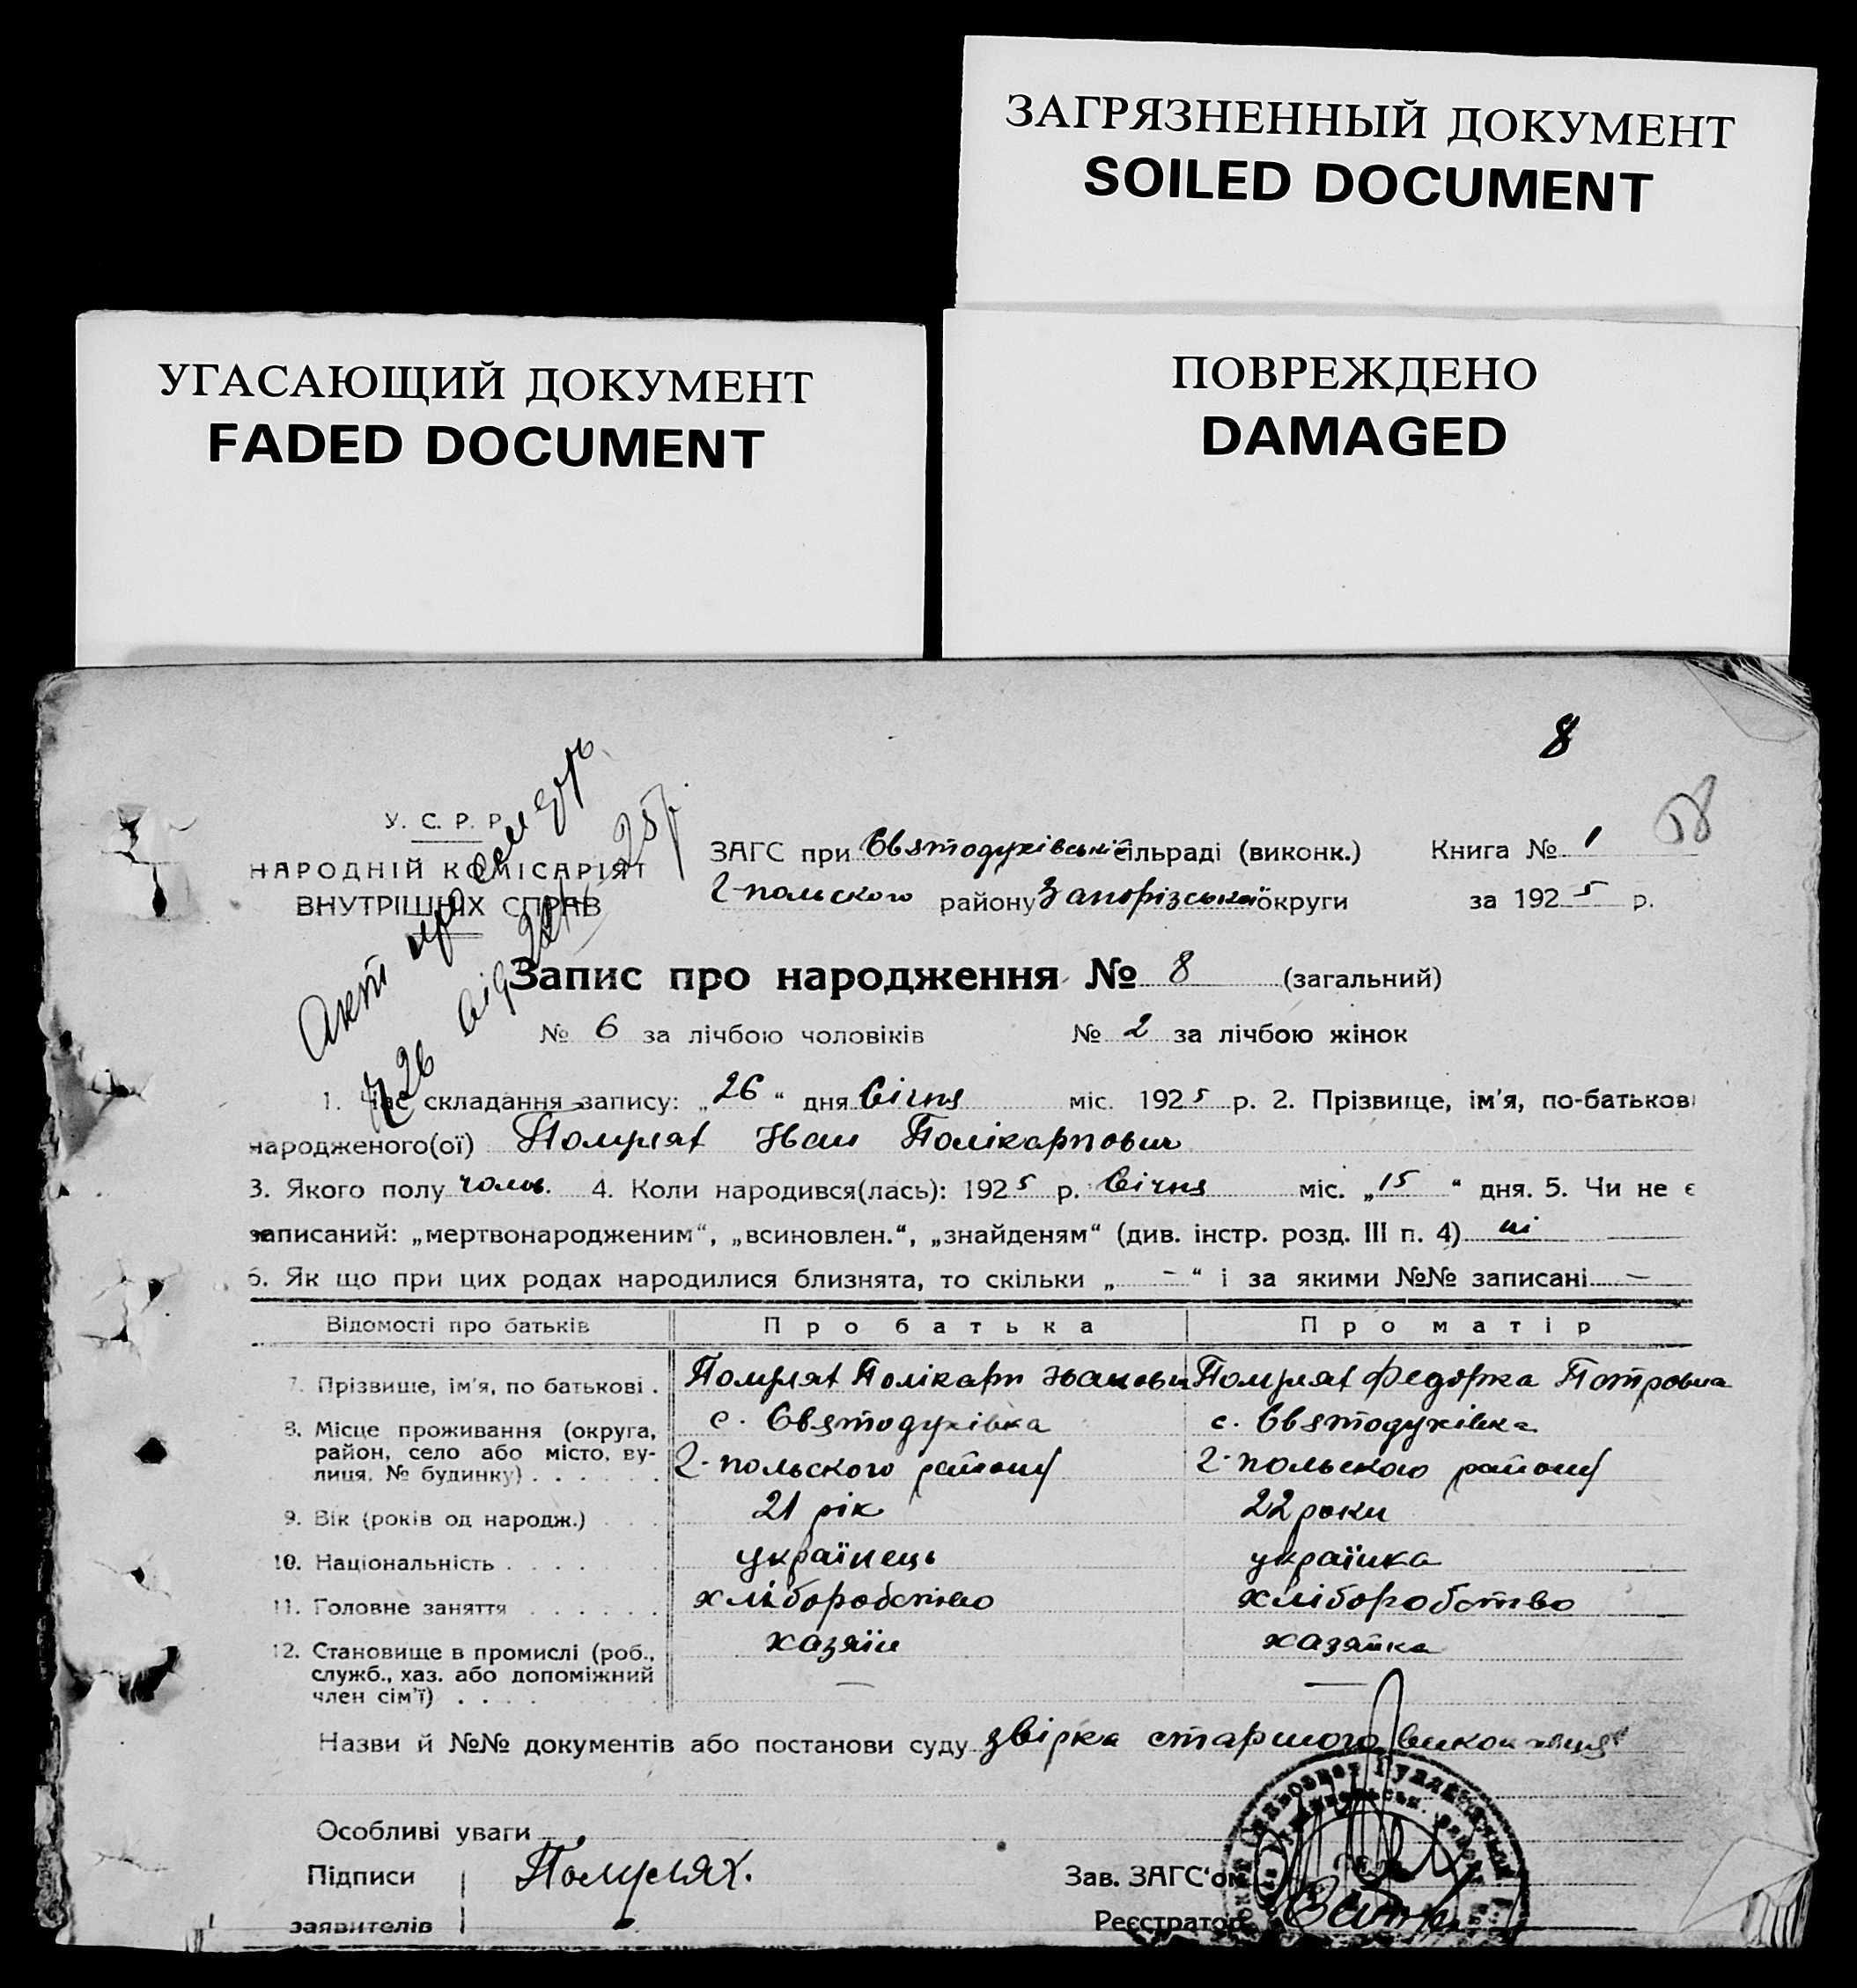 ЗАГРЯЗНЕННЫЙ ДОКУМЕНТ
SOILED DOCUMENT
УГАСАЮЩИЙ ДОКУМЕНТ
FADED DOCUMENT
ПОВРЕЖДЕНО
DAMAGED
8
У. С. Р. Р.
НАРОДНІЙ КОМІСАРІЯТ
ВНУТРІШНІХ СПРАВ
Акт про
№ 26 від 25 р.
ЗАГС при Святодухівські сільраді (виконк.) Книга № 1
2-польского району Запорізської округи за 1925 р.
Запис про народження № 8 (загальний)
№ 6 за лічбою чоловіків № 2 за лічбою жінок
1. Час складання запису: „26“ дня Січня міс. 1925 р. 2. Прізвище, ім'я, по-батькові
народженого(ої) Помулях Іван Полікарпович
3. Якого полу чолов. 4. Коли народився(лась): 1925 р. Січня міс. „15“ дня. 5. Чи не є
записаний: „мертвонародженим“, „всиновлен.“, „знайденям“ (див. інстр. розд. III п. 4) ні
6. Як що при цих родах народилися близнята, то скільки „ - “ і за якими №№ записані —
Відомості про батьків Про батька Про матір
7. Прізвище, ім'я, по батькові . Помулях Полікарп Іванович Помулях Федорка Потровна
8. Місце проживання (округа, с. Святодухівка с. Святодухівка
район, село або місто, ву-
лиця, № будинку) . . . . . . 2-польского району 2-польского району
9. Вік (років од народж.) . . . 21 рік 22 роки
10. Національність . . . . українець українка
11. Головне заняття . . . . . . хліборобство хліборобство
12. Становище в промислі (роб., хазяїн хазяйка
служб., хаз. або допоміжний
член сім'ї) . . . . — —
Назви й №№ документів або постанови суду звірка старшого виконавця
Особливі уваги
Підписи Помулях. Зав. ЗАГС'ом
заявителів Реєстратор